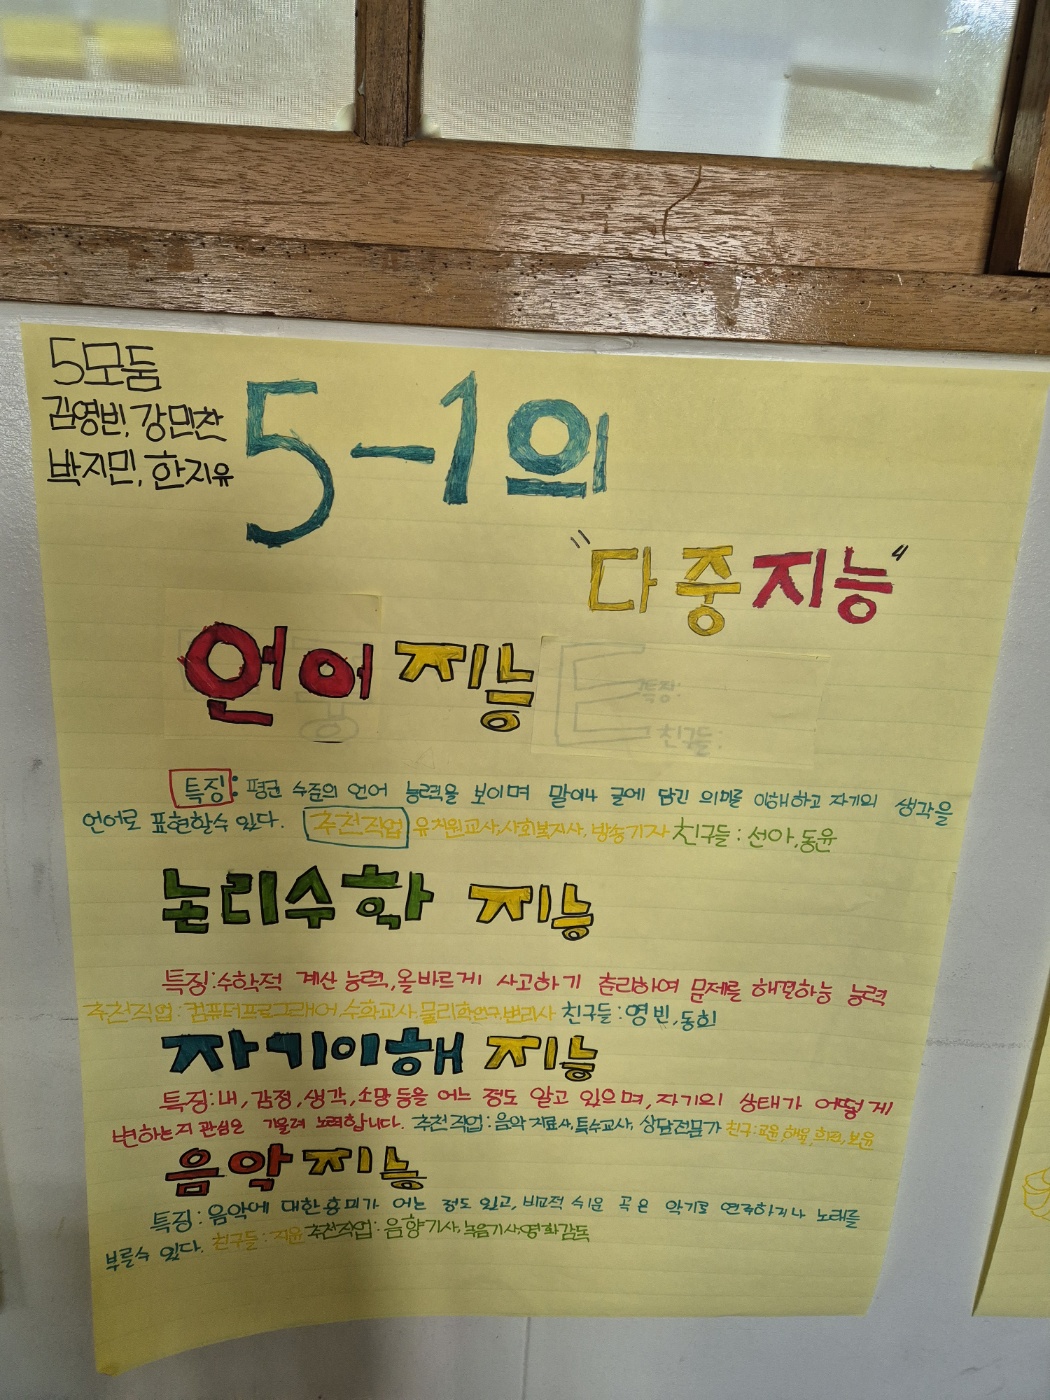 5모둠
김영빈, 강민찬
박지민, 한지유
5-1의
"다중지능"
언어 지능
특징:
친구들:
특징: 평균 수준의 언어 능력을 보이며 말이나 글에 담긴 의미를 이해하고 자기의 생각을
언어로 표현할수 있다. 추천직업 유치원교사, 사회복지사, 방송기자 친구들: 선아, 동윤
논리수학 지능
특징: 수학적 계산 능력, 올바르게 사고하기 추리하여 문제를 해결하능 능력
추천직업: 컴퓨터프로그래머, 수학교사, 물리학연구, 변리사 친구들: 영빈, 동희
자기이해 지능
특징: 내, 감정, 생각, 소망 등을 어느 정도 알고 있으며, 자기의 상태가 어떻게
변하는지 관심을 기울려 노력합니다. 추천직업: 음악치료사, 특수교사, 상담전문가 친구:
음악지능
특징: 음악에 대한 흥미가 어느 정도 있고, 비교적 쉬운 곡은 악기로 연주하거나 노래를
부를수 있다. 친구들: 지윤 추천직업: 음향기사, 녹음기사, 영화감독